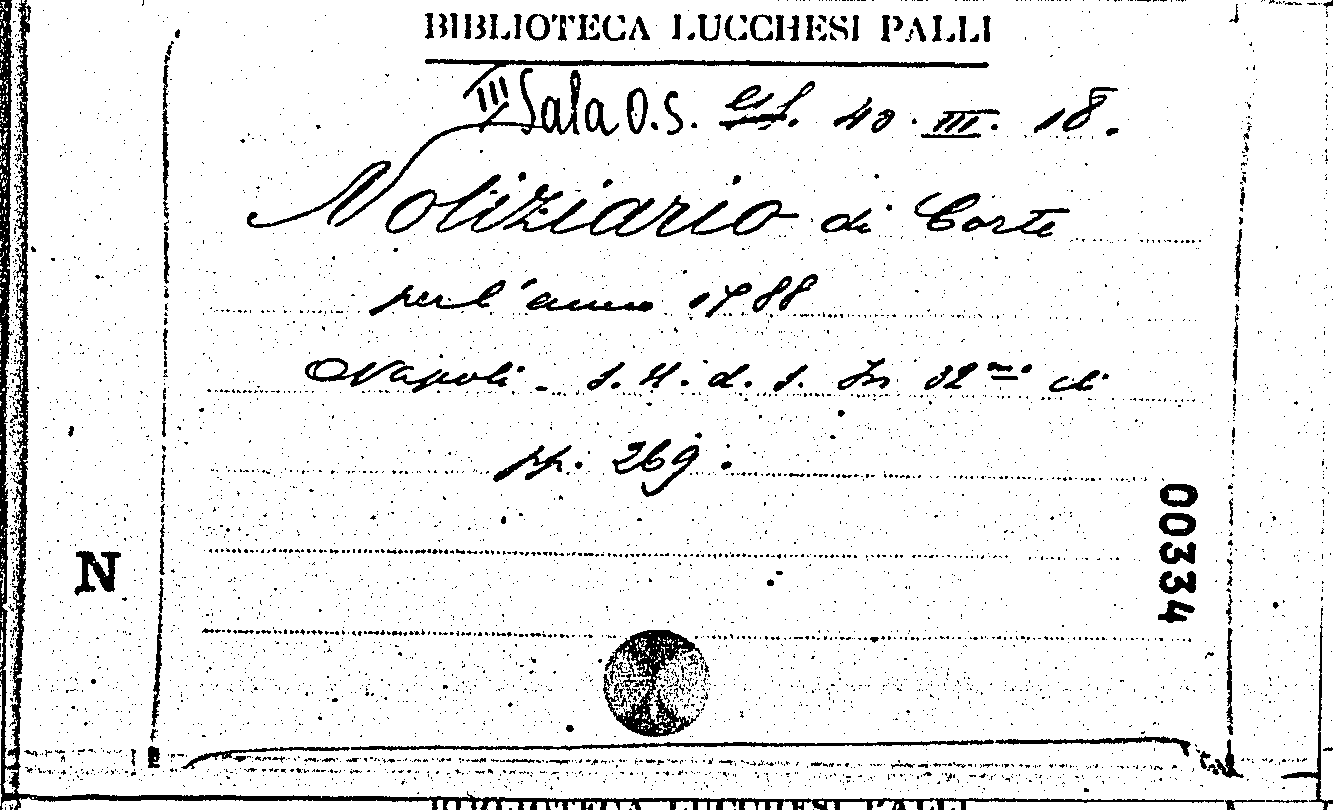 BIBLIOTECA LUCCHESI PALLI
III Sala O.S. 40. III. 18.
Notiziario di Corte
per l'anno 1788
Napoli - s. d. s. In 32mo di
pp. 269.
N
00334
BIBLIOTECA LUCCHESI PALLI